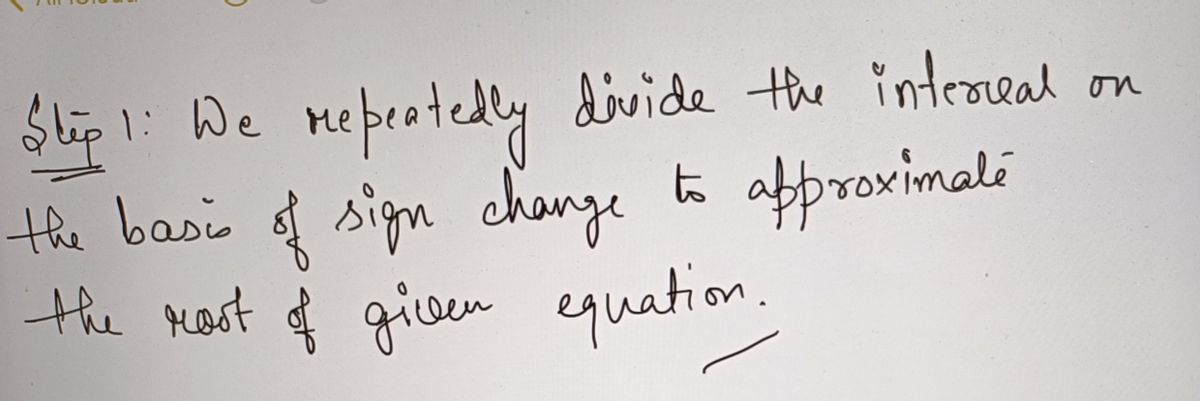 Step 1: We repeatedly divide the interval on
the basis of sign change to approximate
the root of given equation.